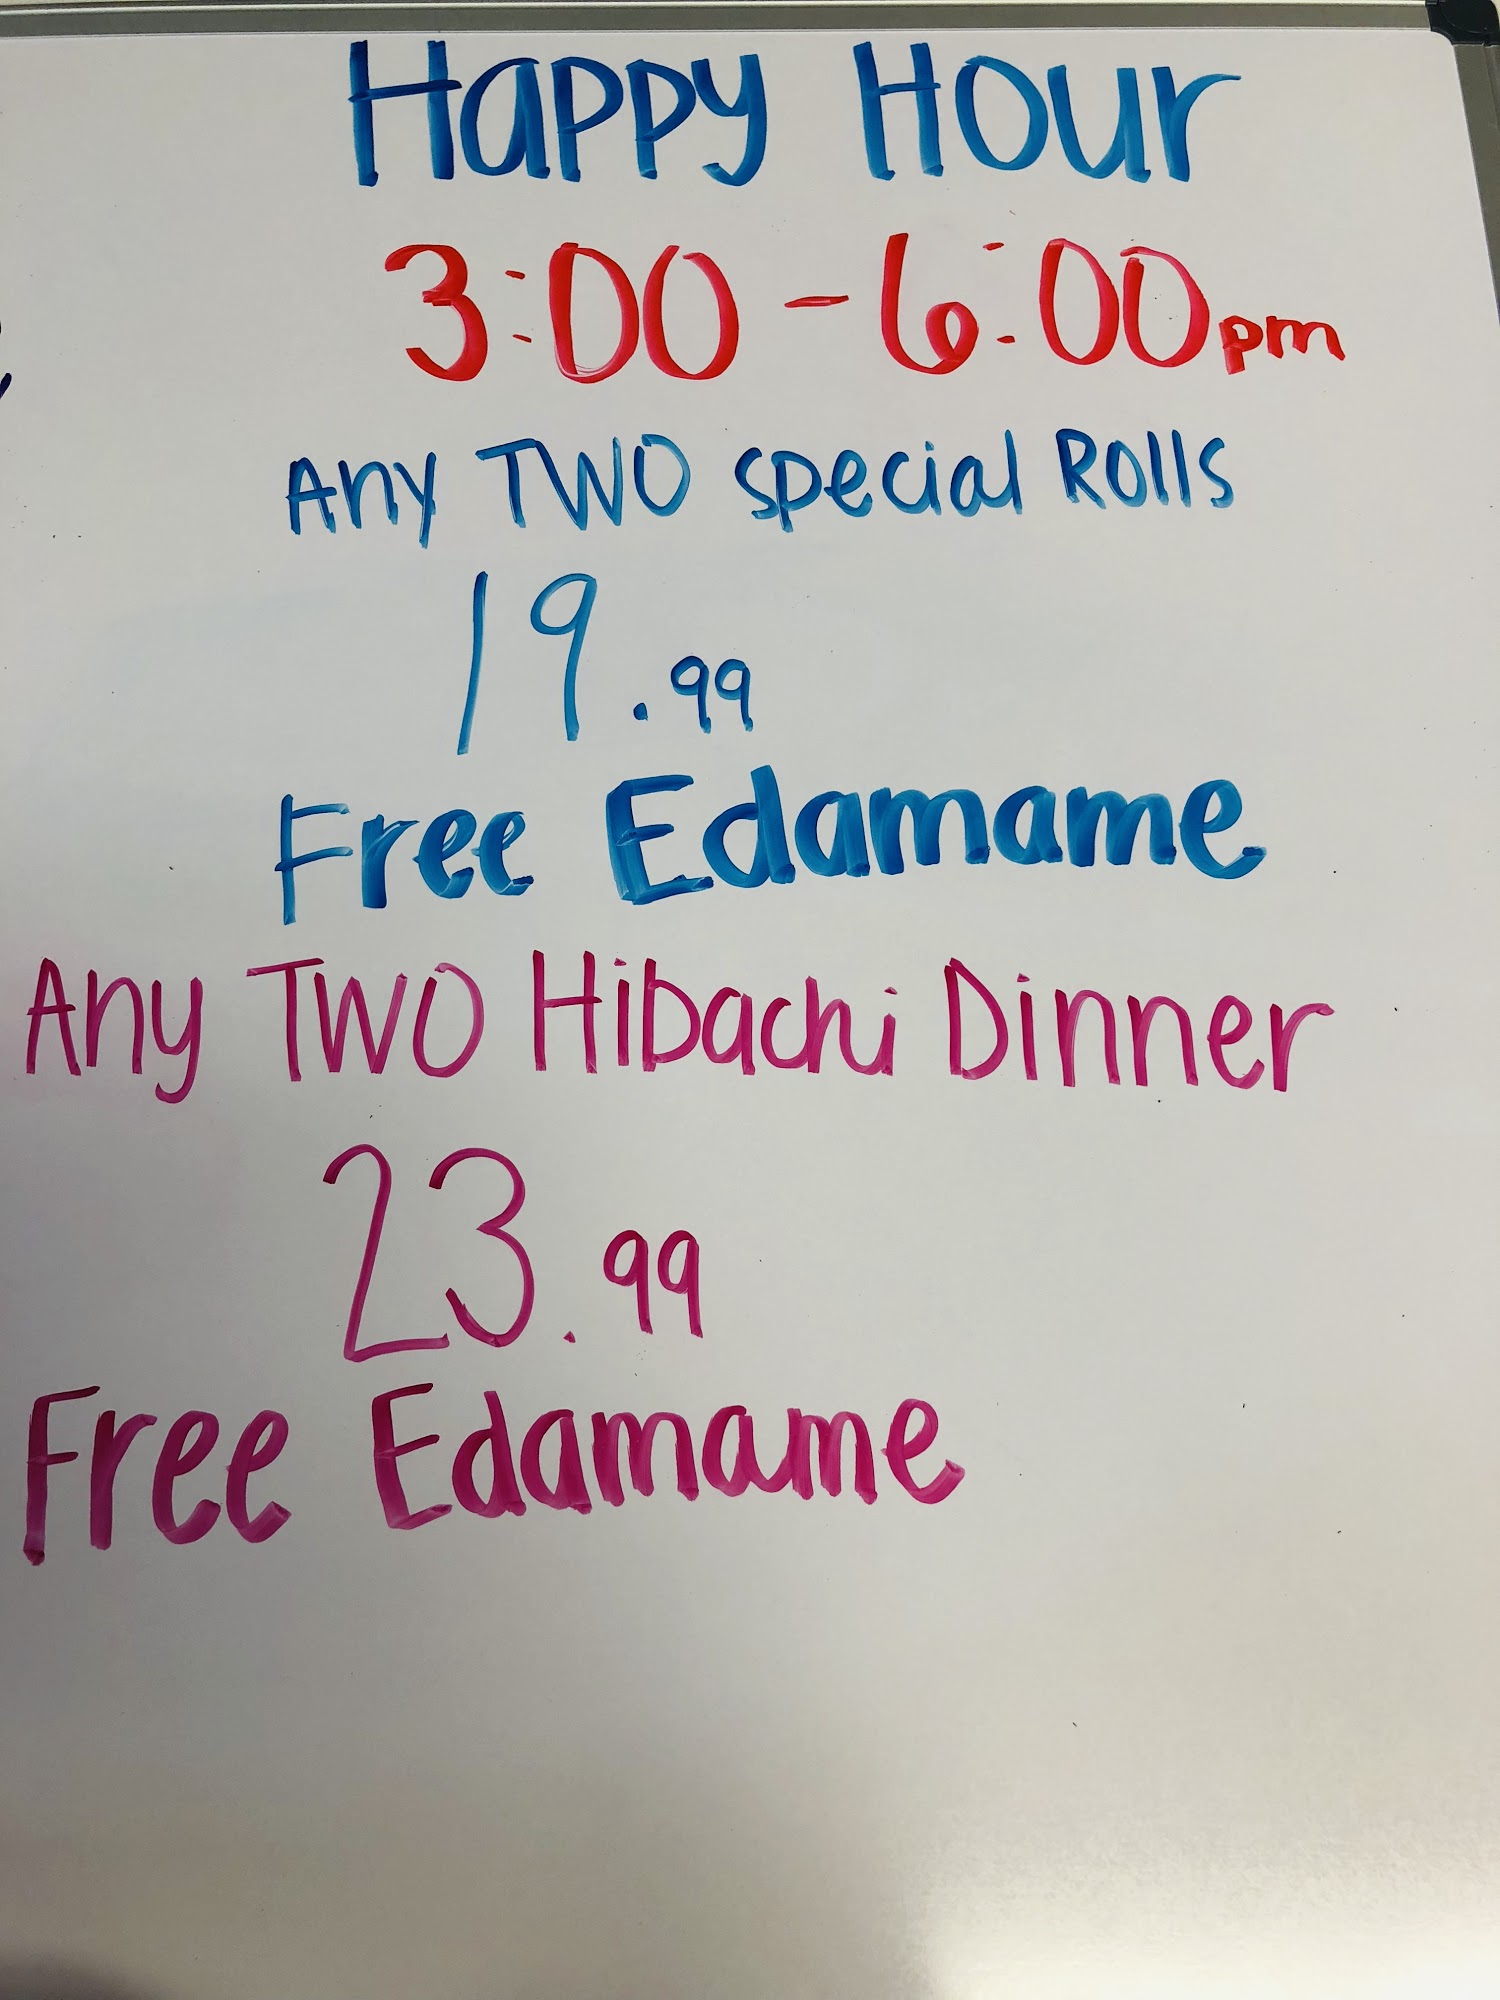 Happy Hour
3:00 - 6:00 pm
Any TWO special Rolls
19.99
Free Edamame
Any TWO Hibachi Dinner
23.99
Free Edamame